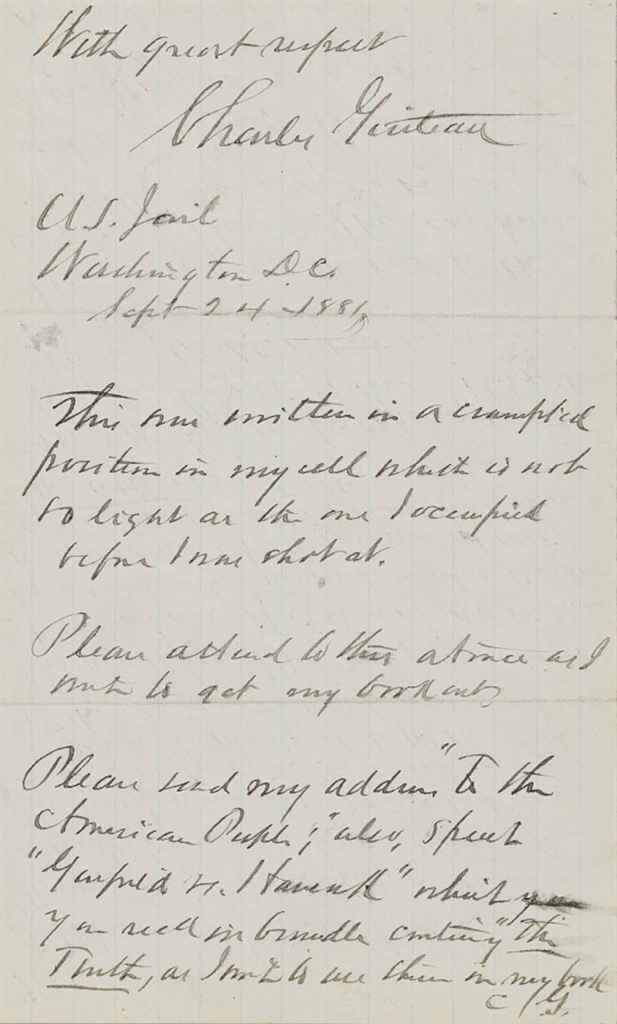 With great respect
Charles Guiteau
U.S. Jail
Washington D.C.
Sept 24 - 1881,
This was written in a crampted
position in my cell which is not
so light as the one I occupied
before I was shot at.
Please attend to this at once as I
want to get my book out,
Please send my address "To the
American People;" also, speech
"Garfield vs. Hancock" which
you rec'd in bundle containing "The
Truth, as I want to use them in my book
C. G.